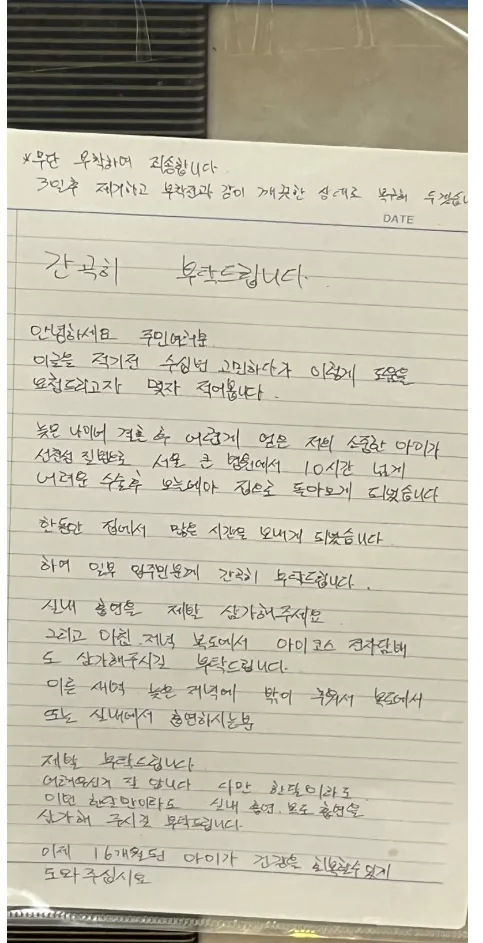 *무단 부착하여 죄송합니다
3일후 제거하고 부착전과 같이 깨끗한 상태로 복구해 두겠습니
DATE
간곡히 부탁드립니다.
안녕하세요 주민여러분
이글을 적기전 수십번 고민하다가 이렇게 도움을
요청드리고자 몇자 적어봅니다.
늦은 나이에 결혼 후 어렵게 얻은 저희 소중한 아이가
선천성 질병으로 서울 큰 병원에서 10시간 넘게
어려운 수술후 오늘에야 집으로 돌아오게 되었습니다
한동안 집에서 많은 시간을 보내게 되었습니다
하여 일부 입주민분께 간곡히 부탁드립니다.
실내 흡연을 제발 삼가해주세요
그리고 아침 저녁 복도에서 아이코스 전자담배
도 삼가해주시길 부탁드립니다.
이른 새벽 늦은 저녁에 밖이 추워서 복도에서
또는 실내에서 흡연하시는분
제발 부탁드립니다
어려우신거 잘 압니다 다만 한달이라도
이번 한달만이라도 실내 흡연, 복도 흡연을
삼가해 주시길 부탁드립니다.
이제 16개월된 아이가 건강을 회복할수있게
도와주십시요